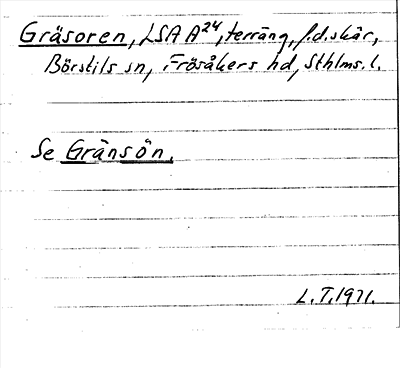 Gräsoren, LSA A24, terräng, f.d. skär,
Börstils sn, Frösåkers hd, Sthlms. l.
Se Gränsön.
L.T. 1971.